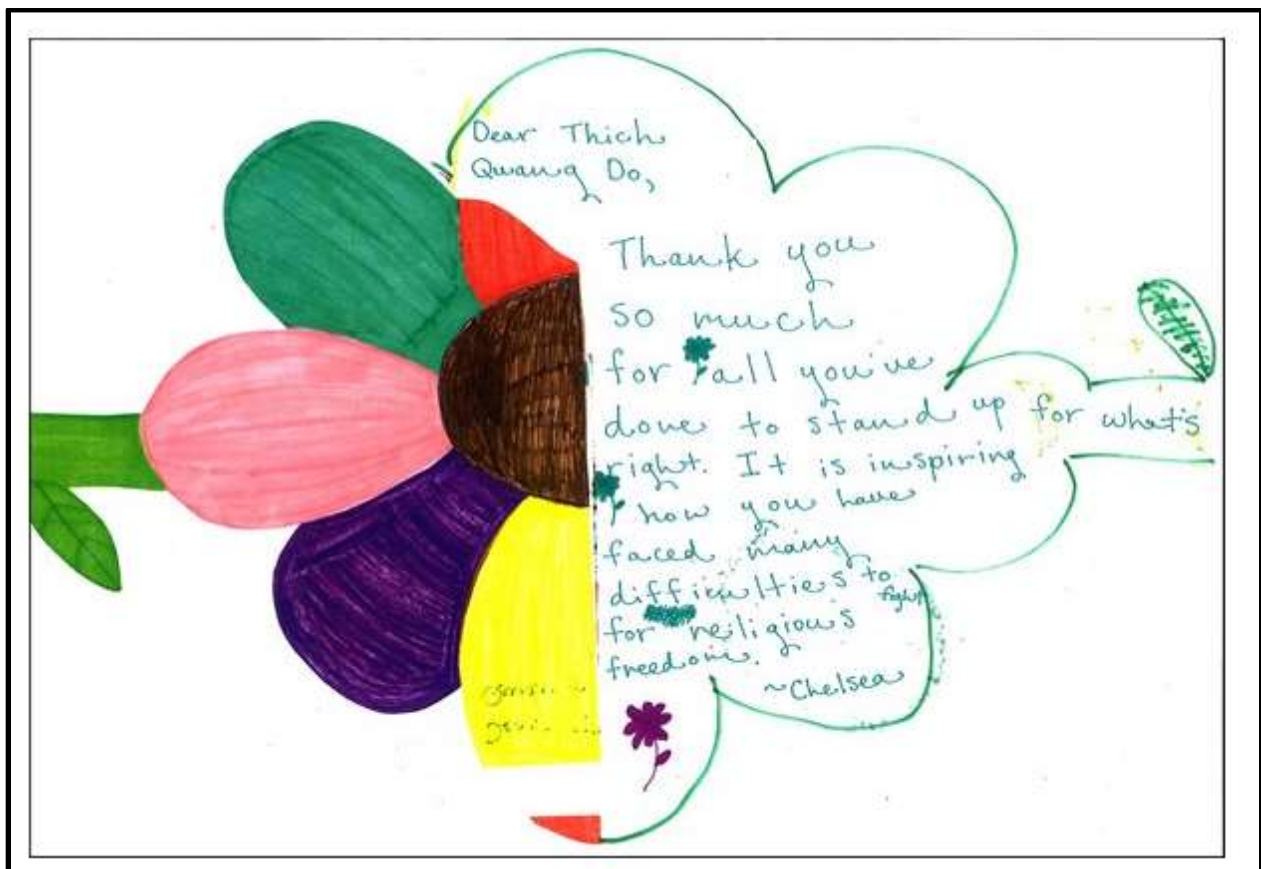 Dear Thich
Quang Do,
Thank you
so much
for all you've
done to stand up for what's
right. It is inspiring
how you have
faced many
difficulties to fight
for religious
freedom.
~Chelsea